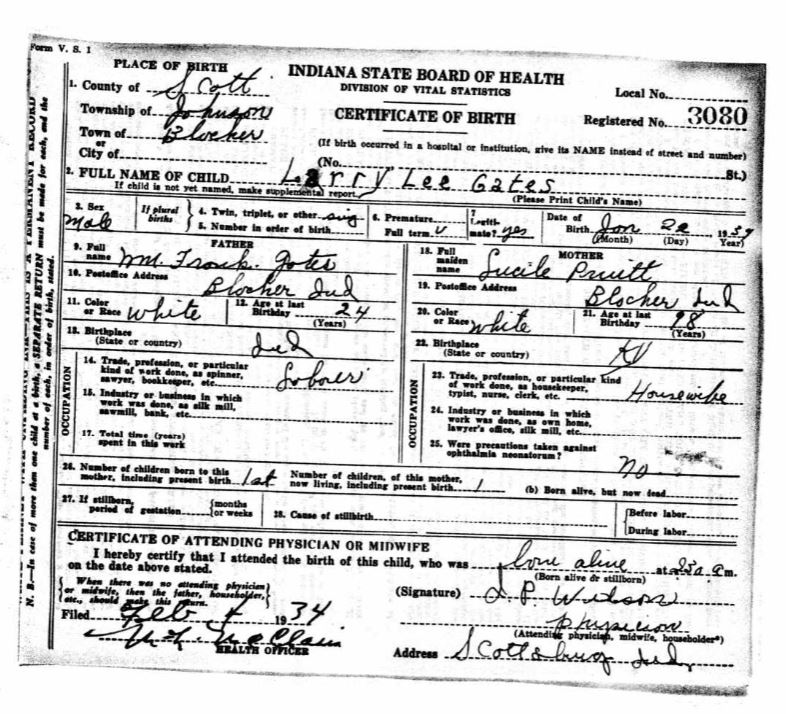 Form V. S. 1
PLACE OF BIRTH
INDIANA STATE BOARD OF HEALTH
DIVISION OF VITAL STATISTICS
CERTIFICATE OF BIRTH
Local No.
Registered No. 3080
1. County of Scott
Township of Johnson
Town of Blocher
or
City of
(If birth occurred in a hospital or institution, give its NAME instead of street and number)
(No. St.)
2. FULL NAME OF CHILD Larry Lee Gates
If child is not yet named, make supplemental report. (Please Print Child's Name)
3. Sex Male
If plural births
4. Twin, triplet, or other sing
5. Number in order of birth
6. Premature
Full term v
7 Legiti-mate? yes
Date of Birth Jan 1934
(Month) (Day) Year)
FATHER
9. Full name Wm. Frank. Gates
10. Postoffice Address
Blocher Ind
11. Color or Race White
12. Age at last Birthday 24
(Years)
13. Birthplace
(State or country) Ind
OCCUPATION
14. Trade, profession, or particular kind of work done, as spinner, sawyer, bookkeeper, etc. Laborer
15. Industry or business in which work was done, as silk mill, sawmill, bank, etc.
17. Total time (years) spent in this work
MOTHER
18. Full maiden name Lucile Pruitt
19. Postoffice Address
Blocher Ind
20. Color or Race White
21. Age at last Birthday
(Years)
22. Birthplace
(State or country) Ky
OCCUPATION
23. Trade, profession, or particular kind of work done, as housekeeper, typist, nurse, clerk, etc. Housewife
24. Industry or business in which work was done, as own home, lawyer's office, silk mill, etc.
25. Were precautions taken against ophthalmia neonatorum? no
26. Number of children born to this mother, including present birth 1st
Number of children, of this mother, now living, including present birth 1
(b) Born alive, but now dead
27. If stillborn, period of gestation {months or weeks
28. Cause of stillbirth
{Before labor
{During labor
CERTIFICATE OF ATTENDING PHYSICIAN OR MIDWIFE
I hereby certify that I attended the birth of this child, who was born alive at a.m.
on the date above stated. (Born alive or stillborn)
{When there was no attending physician or midwife, then the father, householder, etc., should make this return.}
(Signature) J P Wilson
physician
(Attending physician, midwife, householder*)
Filed Feb 4 1934
McClain
HEALTH OFFICER
Address Scottsburg Ind,
N. B.—In case of more than one child at a birth, a SEPARATE RETURN must be made for each, and the number of each, in order of birth, stated.